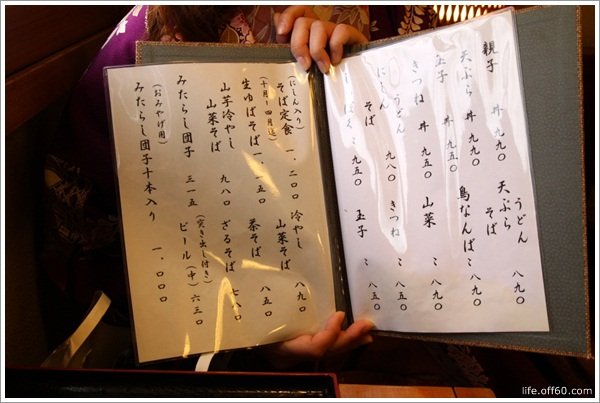 親子 丼 九九〇
天ぷら 丼 九九〇
玉子 丼 九五〇
きつね 丼 九五〇
うどん
にしん 九八〇
そば
九五〇
うどん
天ぷら 八九〇
そば
鳥なんば 〻 八九〇
山菜 〻 八九〇
きつね 〻 八五〇
玉子 〻 八五〇
(にしん入り)
そば定食 一、二〇〇
(十月〜四月迄)
生ゆばそば 一、一五〇
山芋冷やし
山菜そば 九八〇
みたらし団子 三一五
(おみやげ用)
みたらし団子十本入り 一、〇〇〇
冷やし
山菜そば 八九〇
茶そば 八五〇
ざるそば 七八〇
(突き出し付き)
ビール(中) 六三〇
life.off60.com